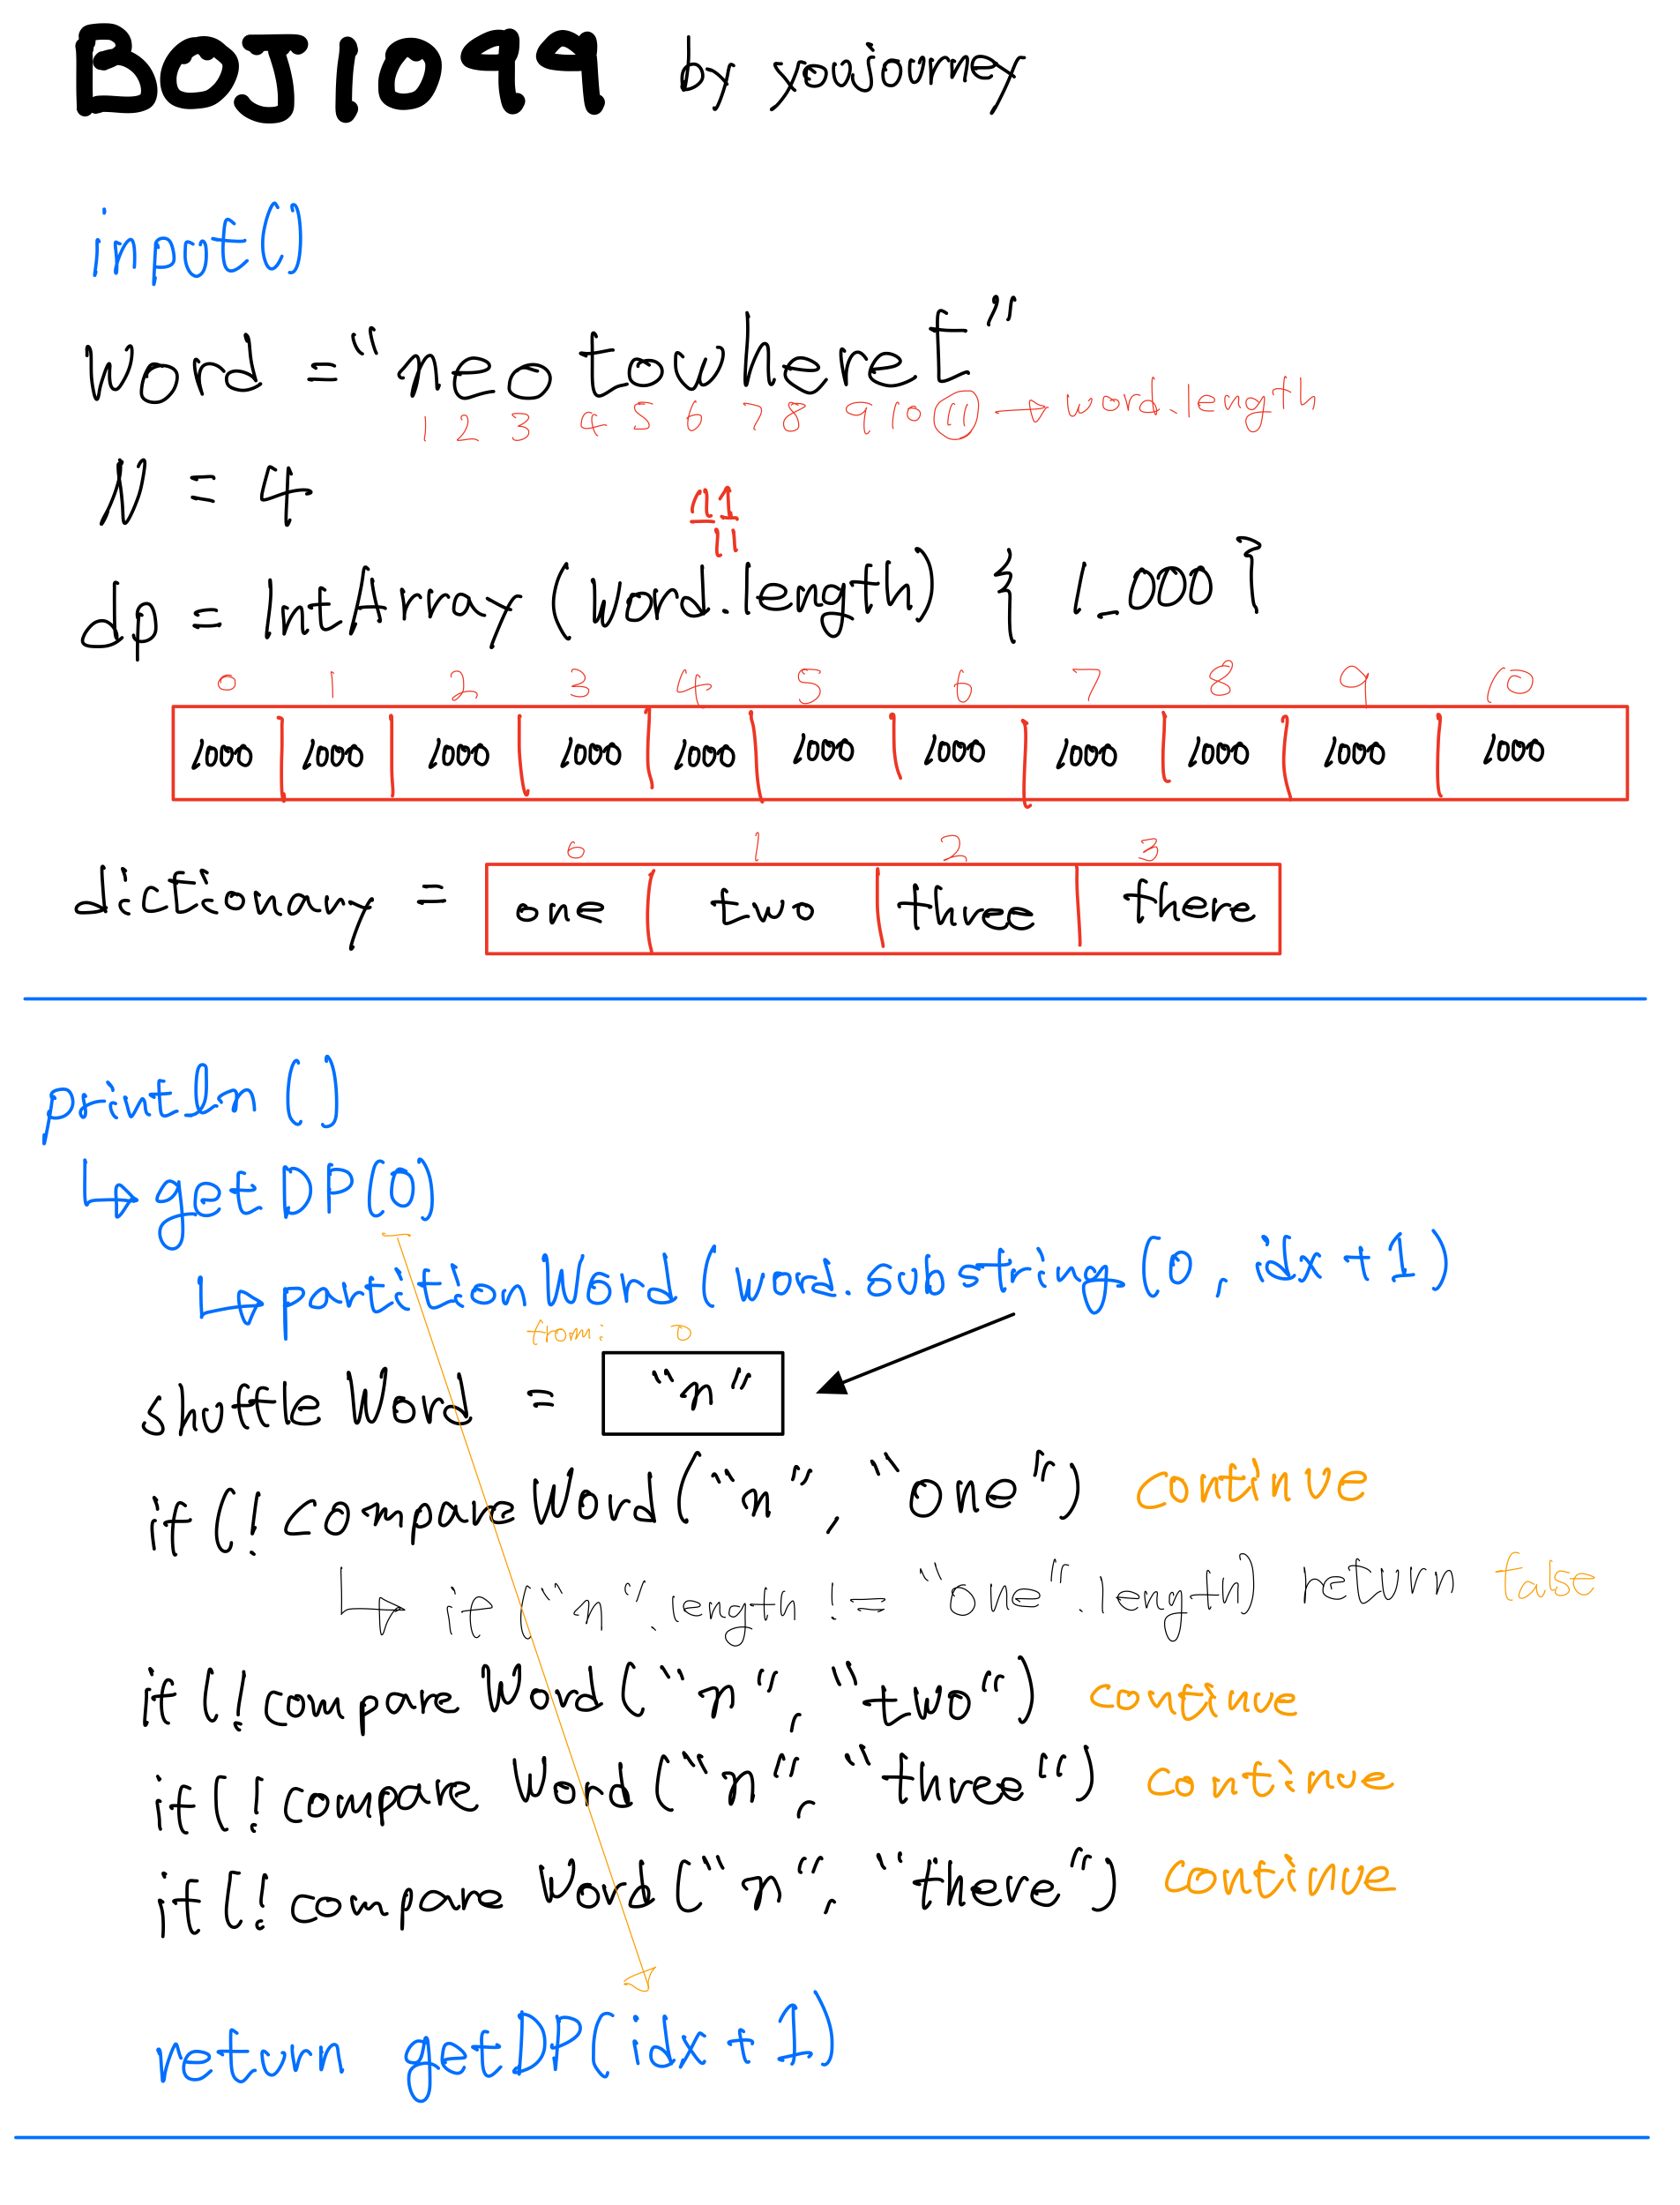 BOJ1099 by yxxjourney
input()
word = "neotowheret"
1 2 3 4 5 6 7 8 9 10 11 → word.length
N = 4
11
dp = IntArray(word.length) { 1_000 }
0 1 2 3 4 5 6 7 8 9 10
1000 1000 1000 1000 1000 1000 1000 1000 1000 1000 1000
0 1 2 3
dictionary = one two three there
println()
↳ getDP(0)
↳ partitionWord(word.substring(0, idx+1)
from: 0
shuffleWord = "n"
if(!compareWord("n", "one") continue
↳ if("n".length != "one".length) return false
if(!compareWord("n", "two") continue
if(!compareWord("n", "three") continue
if(!compareWord("n", "there") continue
return getDP(idx+1)